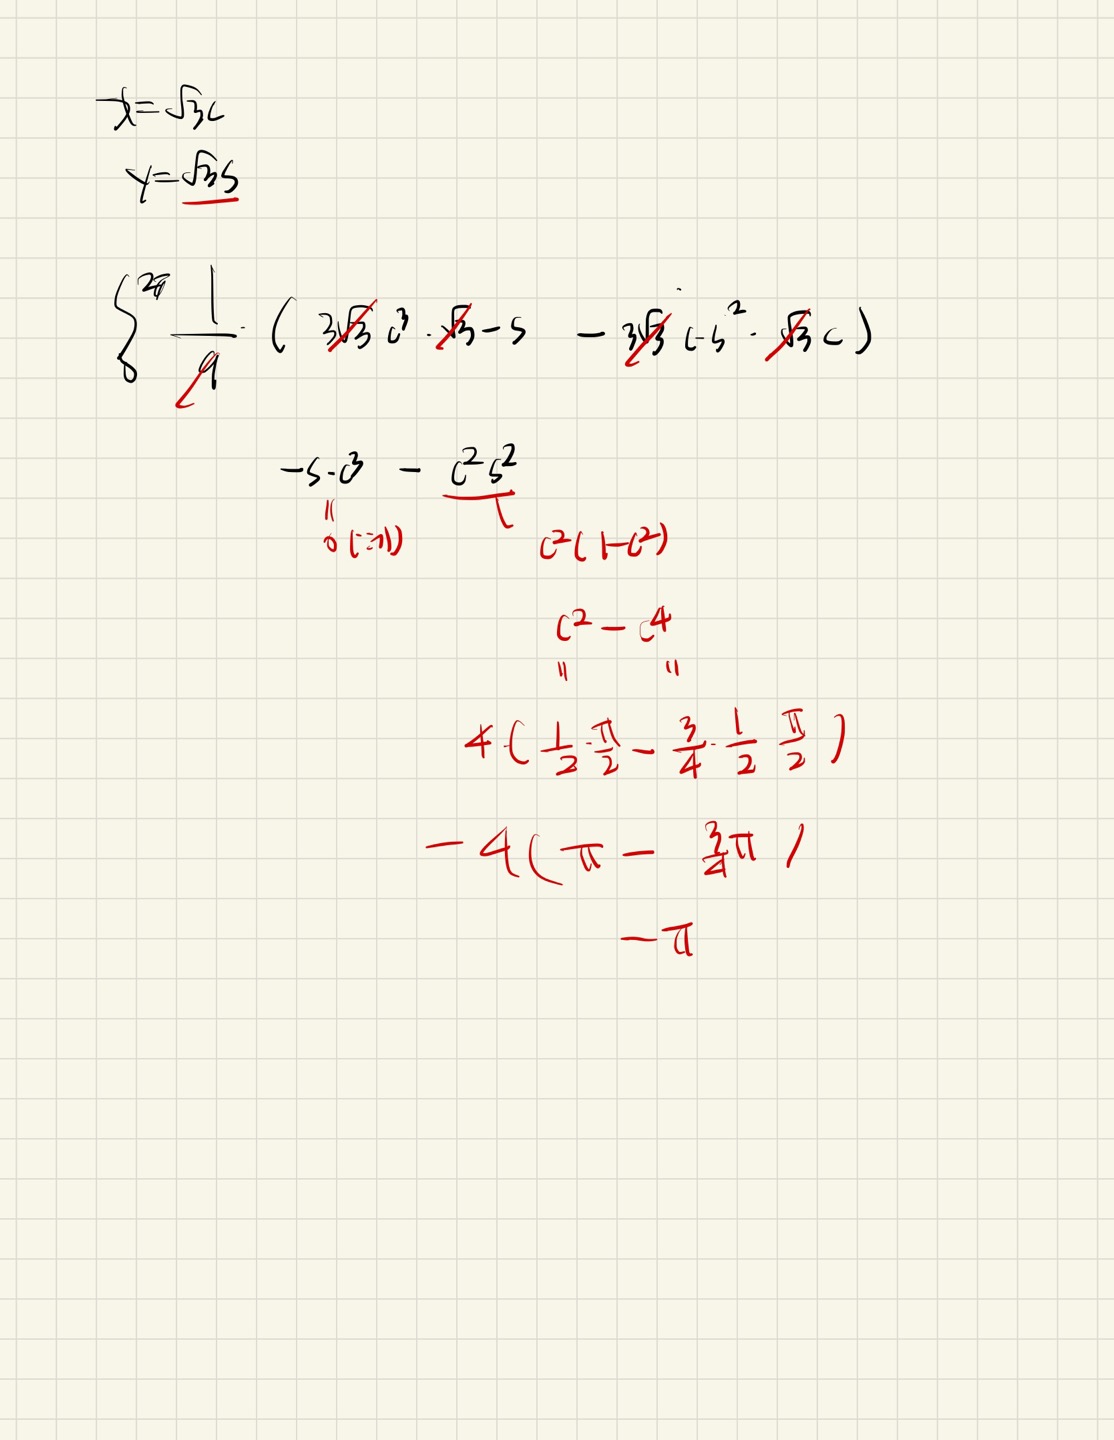 x=√3c
y=√3s
∫₀^2π 1/9 · ( 3√3 c³ · √3 - s - 3√3 c-s² · √3 c )
-s·c³ - c²s²
"
0 (∵기) c²(1-c²)
c² - c⁴
" "
4·( 1/2 · π/2 - 3/4 · 1/2 π/2 )
- 4 ( π - 3/4 π )
- π